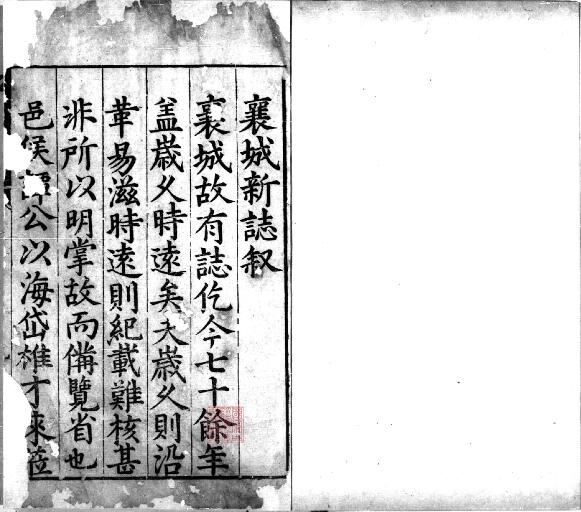 襄城新誌叙
襄城故有誌仡今七十餘年
盖歳乆時逺矣夫歳乆則沿
革易滋時逺則紀載難核甚
非所以明掌故而備覽省也
邑侯譚公以海岱雄才来蒞